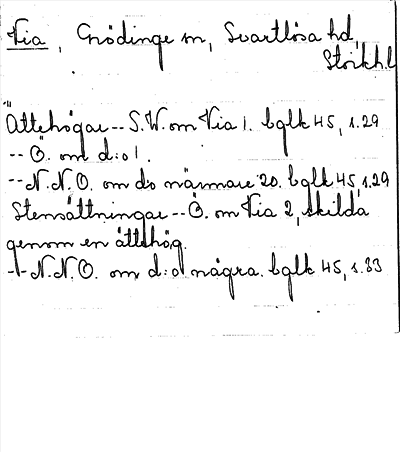 Via, Grödinge sn, Svartlösa hd,
Stockhl
Ättehögar -- S.W. om Via 1. bglk 45, s.29
-- Ö. om d:o 1.
-- N.N.O. om do närmare 20. bglk 45, s.29
Stensättningar -- Ö. om Via 2, skilda
genom en ättehög.
-- N.N.O. om d:o några. bglk 45, s.33